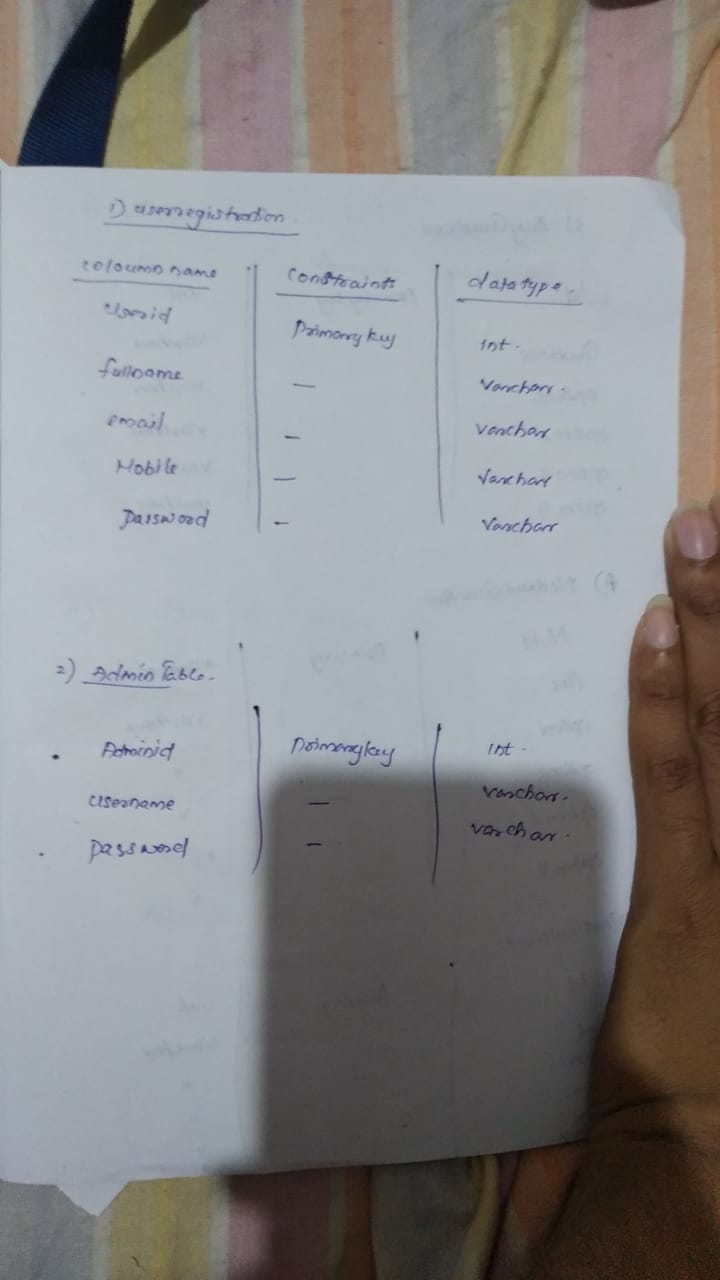 1) userregistration
coloumn name constraints data type.
Userid Primary key int.
fullname — Varchar.
email — varchar
Mobile — Varchar
Password — Varchar
2) Admin Table.
Adminid Primary key int.
username — varchar.
password — varchar.